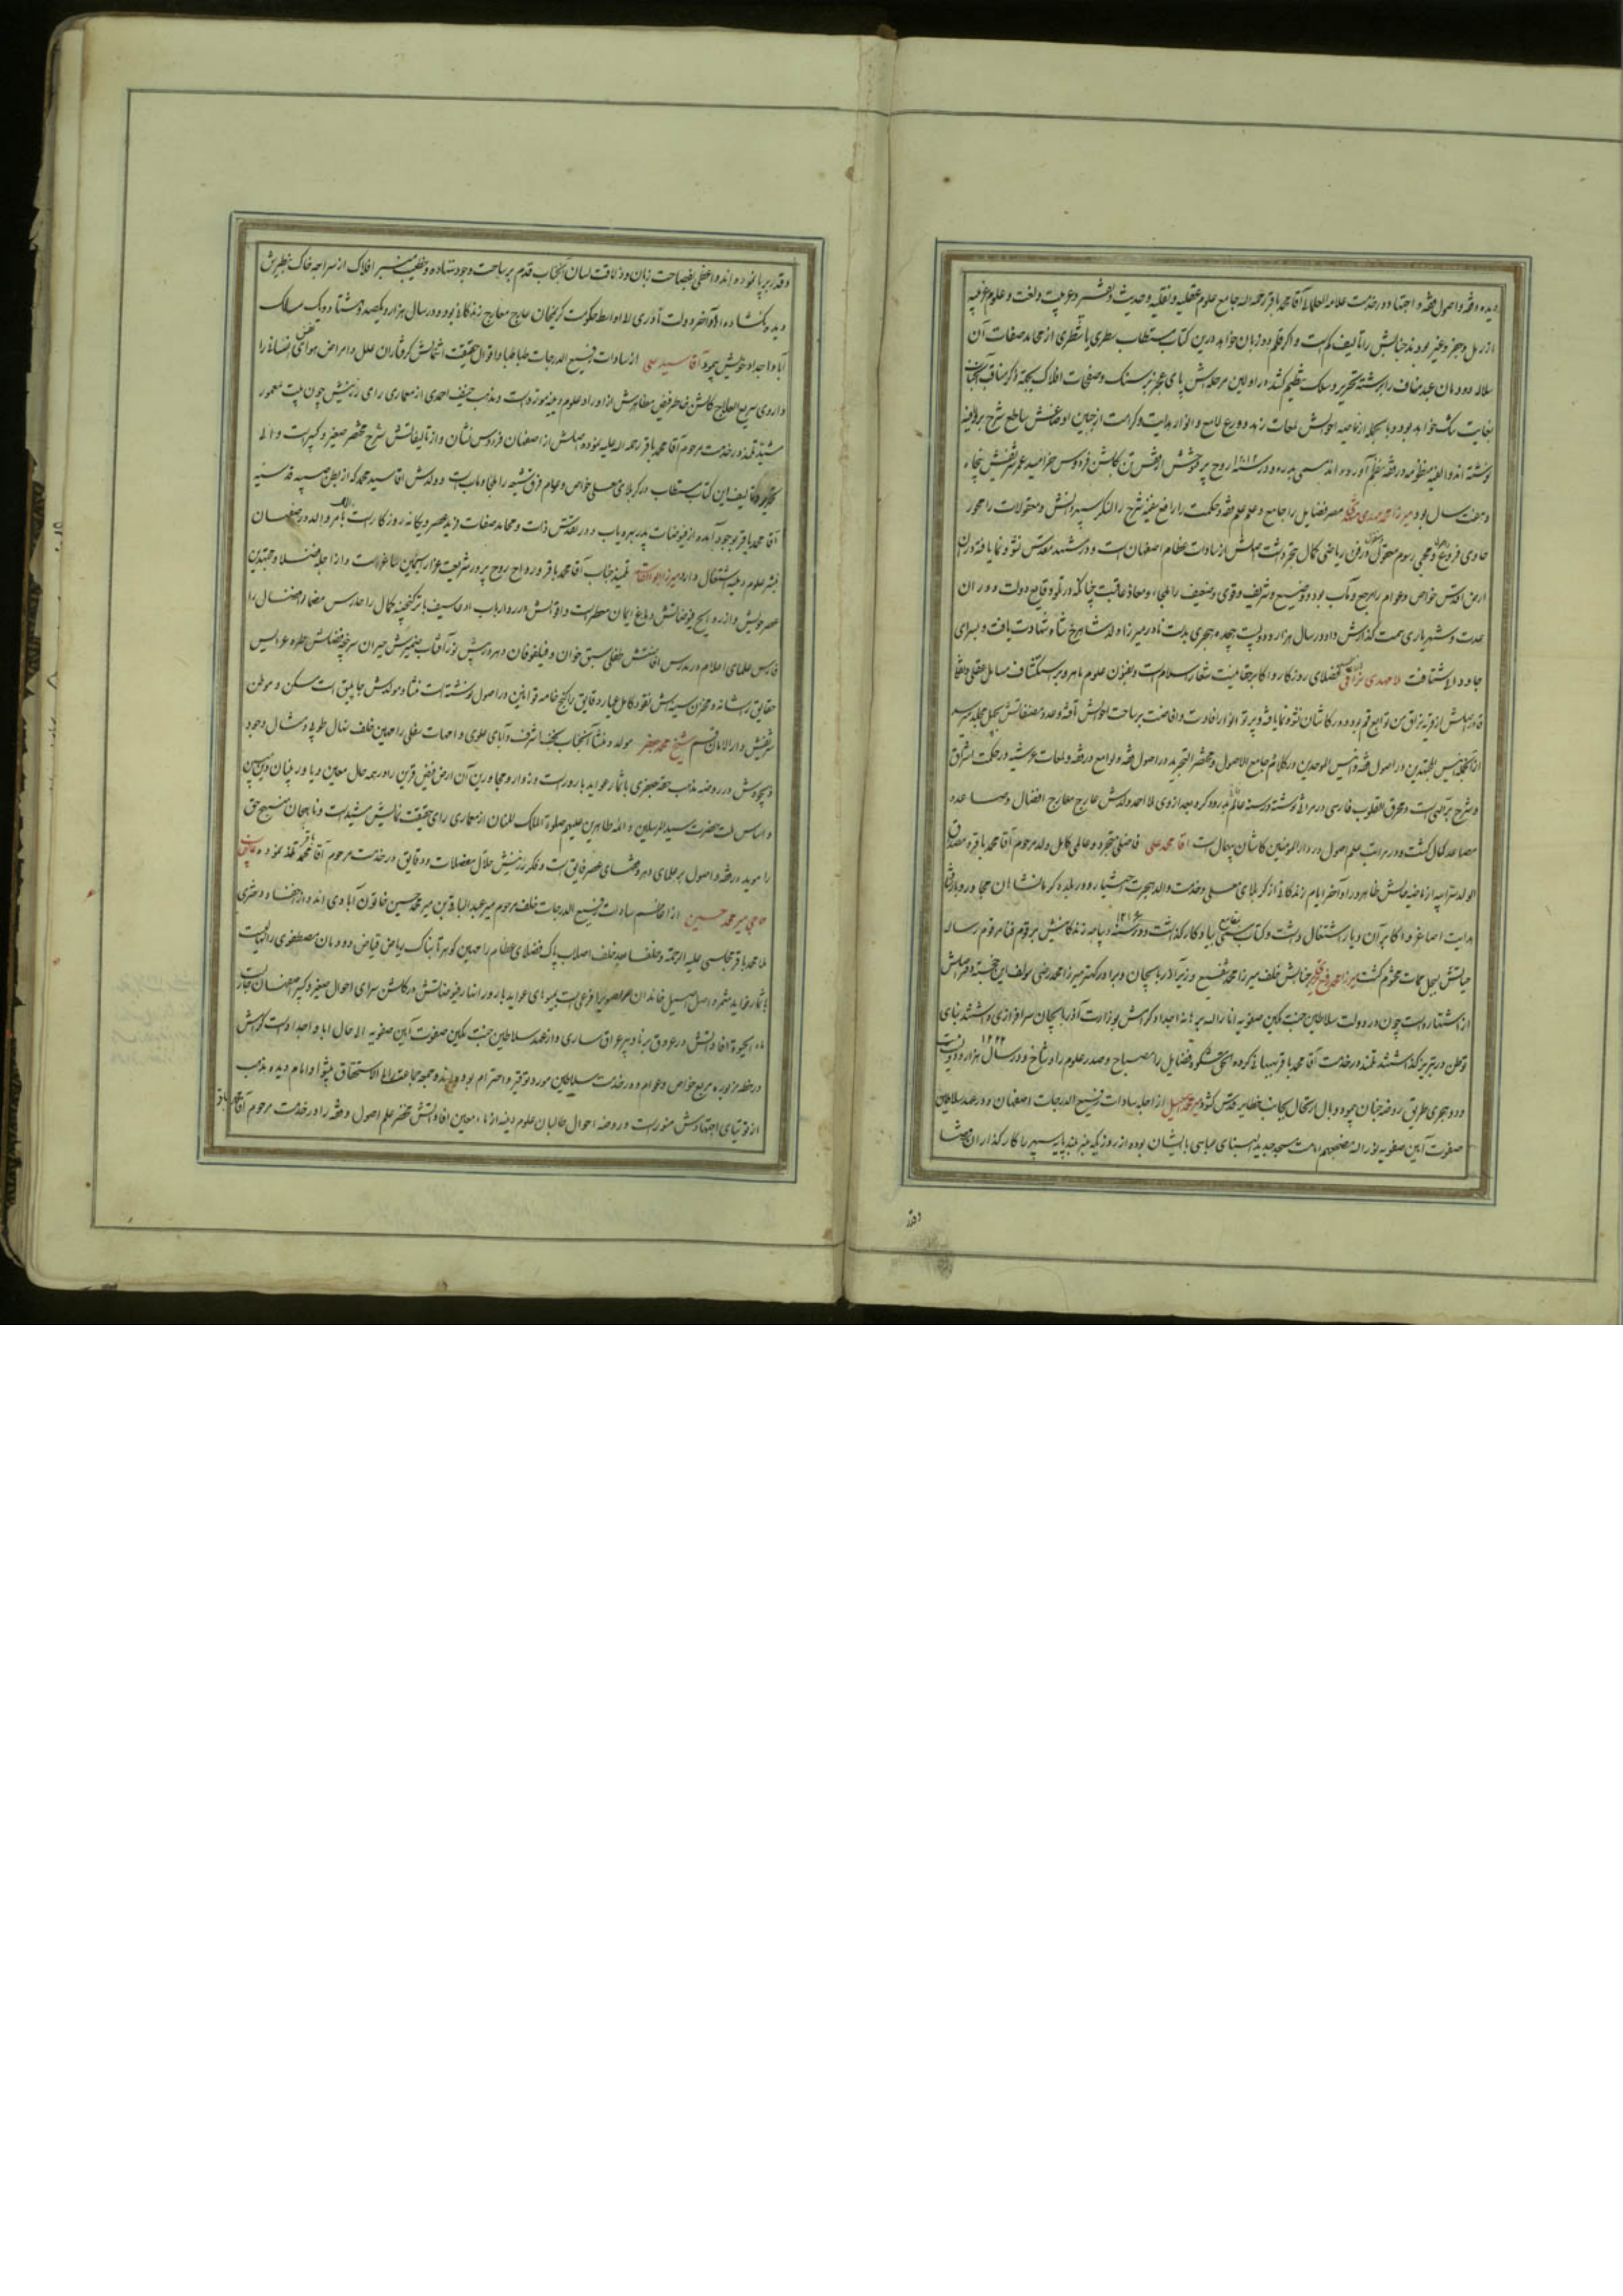 دیده و فقه و اصول فقه و اجتهاد در خدمت علامة العلمائی آقا محمد باقر رحمه الله جامع علوم عقلیه و نقلیه و حدیث و تفسیر و عربیت و لغت و علوم غریبه
از رمل و جفر و غیر بود و بدر جنابش را تالیف که است و اگر قلم دو زبان خواهد درین کتاب مستطاب سطری یا شطری از محامد صفات آن
سلاله دودمان عبد مناف را برشته تحریر و سلک تنظیم کشد در اولین مرحله اش پای عجز بر سنگ و صفحات افلاک بجهة ذکر مناقب آنجناب
بغایت تنگ خواهد بود و بالجمله از ناصیه احوالش لمعات زهد و ورع لامع و انوار هدایت و کرامت از جبین اوضاعش ساطع شرح بر وافیه
نوشته اند و الفیه منظومه در فقه بنظم آورده اند سمی بدره و در سنه ۱۲۱۲ روح پر فتوحش از قفس تن بگلشن فردوس خرامید عمر شریفش پنجاه
و هفت سال بود میرزا محمد مهدی مشهد مصر فضایل را جامع و علم علم فقه و حکمت را رافع سفینه شرح را لنگر سپهر دانش و معقولات را محور
حاوی فروع و اصول و محیی رسوم معقول و منقول در فن ریاضی کمال تبحر داشت اصلش از سادات عظام اصفهان است و در مشهد مقدس نشو و نما یافته در آن
ارض اقدس خواص و عوام را مرجع و مآب بود و وضیع و شریف و قوی و ضعیف را ملجاء و معاذ عاقبت چنانکه در وقایع دولت دوران
عدت و شهریاری سمت گذارش داد در سال هزار و دویست و هجده هجری بدست نادر میرزا ولد شاهرخ شاه شهادت یافت و بسرای
جاودانی شتافت ملا مهدی نراقی افضل فضلای روزگار و اکابر حقانیت شعار اسلام است و بفنون علوم ماهر و بر استکشاف مسایل عقلی و نقلی
قادر اصلش از قریه نراق من توابع قم بوده و در کاشان نشو و نما یافته و پرتو انوار افادت و افاضت بر ساحت احوالش تافته و عدد مصنفاتش بچهل مجلد میرسد
از آنجمله انیس المجتهدین در اصول فقه و انیس الموحدین در کلام و جامع الاصول و مختصر التجرید در اصول فقه و لوامع در فقه و لمعات عرشیه در حکمت اشراق
و شرح بر الهی است و محرق القلوب فارسی در مراثی نوشته و در سنه عالم را بدرود کرده بعد از وی ملا احمد ولدش عارج معارج افضال و صاعد
مصاعد کمال گشت و در مراتب علم اصول در دار المومنین کاشان بیهمال است آقا محمد علی فاضلی متبحر و عالمی کامل ولد مرحوم آقا محمد باقر و مصداق
الولد سر ابیه از ناصیه حالش ظاهر در اواخر ایام زندگانی از کربلای معلی و خدمت والد هجرت اختیار و در بلده کرمانشاهان مجاور و بارشاد
هدایت اصاغر و اکابر آن دیار اشتغال داشت و کتاب مسمی بقامع بیادگار گذاشت و در سنه ۱۲۱۶ دیباچه زندگانیش بر قوم فنا مرقوم رساله
حیاتش بسجل ممات مختوم گشت میرزا محمد رفیع تبریزی جنابش خلف میرزا محمد شفیع وزیر آذربایجان و برادر کهتر میرزا محمد رضی مولف این خجسته دفتر اصلش
از اشتهارست چون در دولت سلاطین جنت مکین صفویه انار الله برهانه اجداد کرامش بوزارت آذربایجان سرافرازی داشتند بنای
توطن در تبریز گذاشتند تلمذ در خدمت آقا محمد باقر بهبهانی کرده الحق مشکوة فضایل را مصباح و صدر علوم را دستاخ و در سال هزار و دویست ۱۲۲۲
و دو هجری طریق روضه جنان پیمود و بال ارتحال بجانب حظایر قدس گشود میر محمد اسمعیل از اجله سادات رفیع الدرجات اصفهان و در عهد سلاطین
صفوت آئین صفویه نور الله مضجعهم امامت مسجد جدید البنای عباسی با ایشان بوده از روزیکه منبر بلند پایه سپهر را کارگذاران قضا
و قدر
و قدر بر پا نموده اند واعظی بفصاحت زبان و ذلاقت لسان آنجناب قدم بر ساحت وجود ننهاده و خطیب منبر افلاک از سراچه خاک نظیرش
دیده نگشاده الی آواخر دولت نادری الی اواسط حکومت کریمخان عارج معارج زندگانی بود و در سال هزار و یکصد و هشتاد و یک سالک
آباء و اجداد خویش پیمود آقا سید علی از سادات رفیع الدرجات طباطبا و اقوال حقیقت اشتمالش گرفتاران علل و امراض هوای نفس نفسانی را
داروی سریع العلاج گلشن خاطر فیض مظاهرش از اوراد علوم دینیه مورد است و مذهب حنیف احمدی از معماری رای رزینش چون بیت معمور
مشید تلمذ در خدمت مرحوم آقا محمد باقر رحمه الله علیه نموده اصلش از اصفهان فردوس نشان و از تالیفاتش شرح مختصر صغیر و کبیر است و الی
تحریر و تالیف این کتاب مستطاب در کربلای معلی خواص و عوام فرق شیعه را ملجا و مآب است و ولدش آقا سید محمد که از بطن صبیه قدسیه
آقا محمد باقر بوجود آمده از فیوضات پدر بهره یاب و در تقدس ذات و محامد صفات فرید عصر و یگانه روزگار است بامر والد در اصفهان
بنشر علوم دینیه اشتغال دارد میرزا ابوالقاسم تلمیذ جناب آقا محمد باقر و رواح روح پرور شریعت غرا از سیمین شاغر است و از اجله فضلا و مجتهدین
عصر خویش و از روایح فیوضاتش دماغ ایمان معطر است و اقوالش در رد ارباب ادعا سیف باتر گنجینه کمال را حارس مضمار افضال را
فارس علمای اعلام در مدرس افادتش طفلی سبق خوان و فیلسوفان دهر در پیش نور آفتاب ضمیرش حیران سرخیل فضلاش چهره عرایس
حقایق را شانه و مخزن سینه اش نقود کامل عیار دقایق را گنج خانه قوانین در اصول نوشته است منشاء و مولدش جاپلق است مسکن و موطن
شریفش دار الامان قم شیخ محمد جعفر مولد و منشأ آنجناب نجف اشرف و آبای علوی و امهات سفلی را مهین خلف نهال طوبی مثال وجود
ذیجودش در روضه مذهب حقه جعفری باثمار عواید بارور است و زوار و مجاورین آن ارض فیض قرین را در همه حال معین و یاور بنیان دین مبین
و اساس ملت حضرت سید المرسلین و ائمه طاهرین علیهم صلوة الملک المنان از معماری رای حقیقت نمایش مشید است و ناهجان منهج حق
را موید در فقه و اصول بر علمای دهر و فقهای عصر فایق است و فکر رزینش حلال معضلات و دقایق در خدمت مرحوم آقا محمد باقر تلمذ نموده
حاجی میر محمد حسین از اعاظم سادات رفیع الدرجات خلف مرحوم میر عبدالباقی بن میر محمد حسین خاتون آبادی اند و از احفاد دختری
ملا محمد باقر مجلسی علیه الرحمة و خلفاً عن خلف اصلاب پاک فضلای عظام را مهین گوهر تابناک ریاض فیاض دودمان مصطفوی را نهالیست
باثمار فواید مثمر و اصل اصیل خاندان مرتضوی را فرعیست بمیوهای عواید بارور انهار فیوضاتش در گلشن سرای احوال صغیر و کبیر اصفهان جاریست
ماء الحیوة افاداتش در عروق برنا و پیر عراق ساری و از عهد سلاطین جنت مکین صفوت آئین صفویه الی حال اباء و اجداد امت گرامش
در خطه مزبوره مرجع خواص و عوام و در خدمت سلاطین مورد توقیر و احترام بوده اند و جمعه و جماعت را الاستحقاق پیشوا و امام دیده مذهب
از توتیای اجتهادش منور است و روضه احوال طالبان علوم دینیه از ماء معین افاداتش مخضر علم اصول و فقه را در خدمت مرحوم آقا محمد باقر